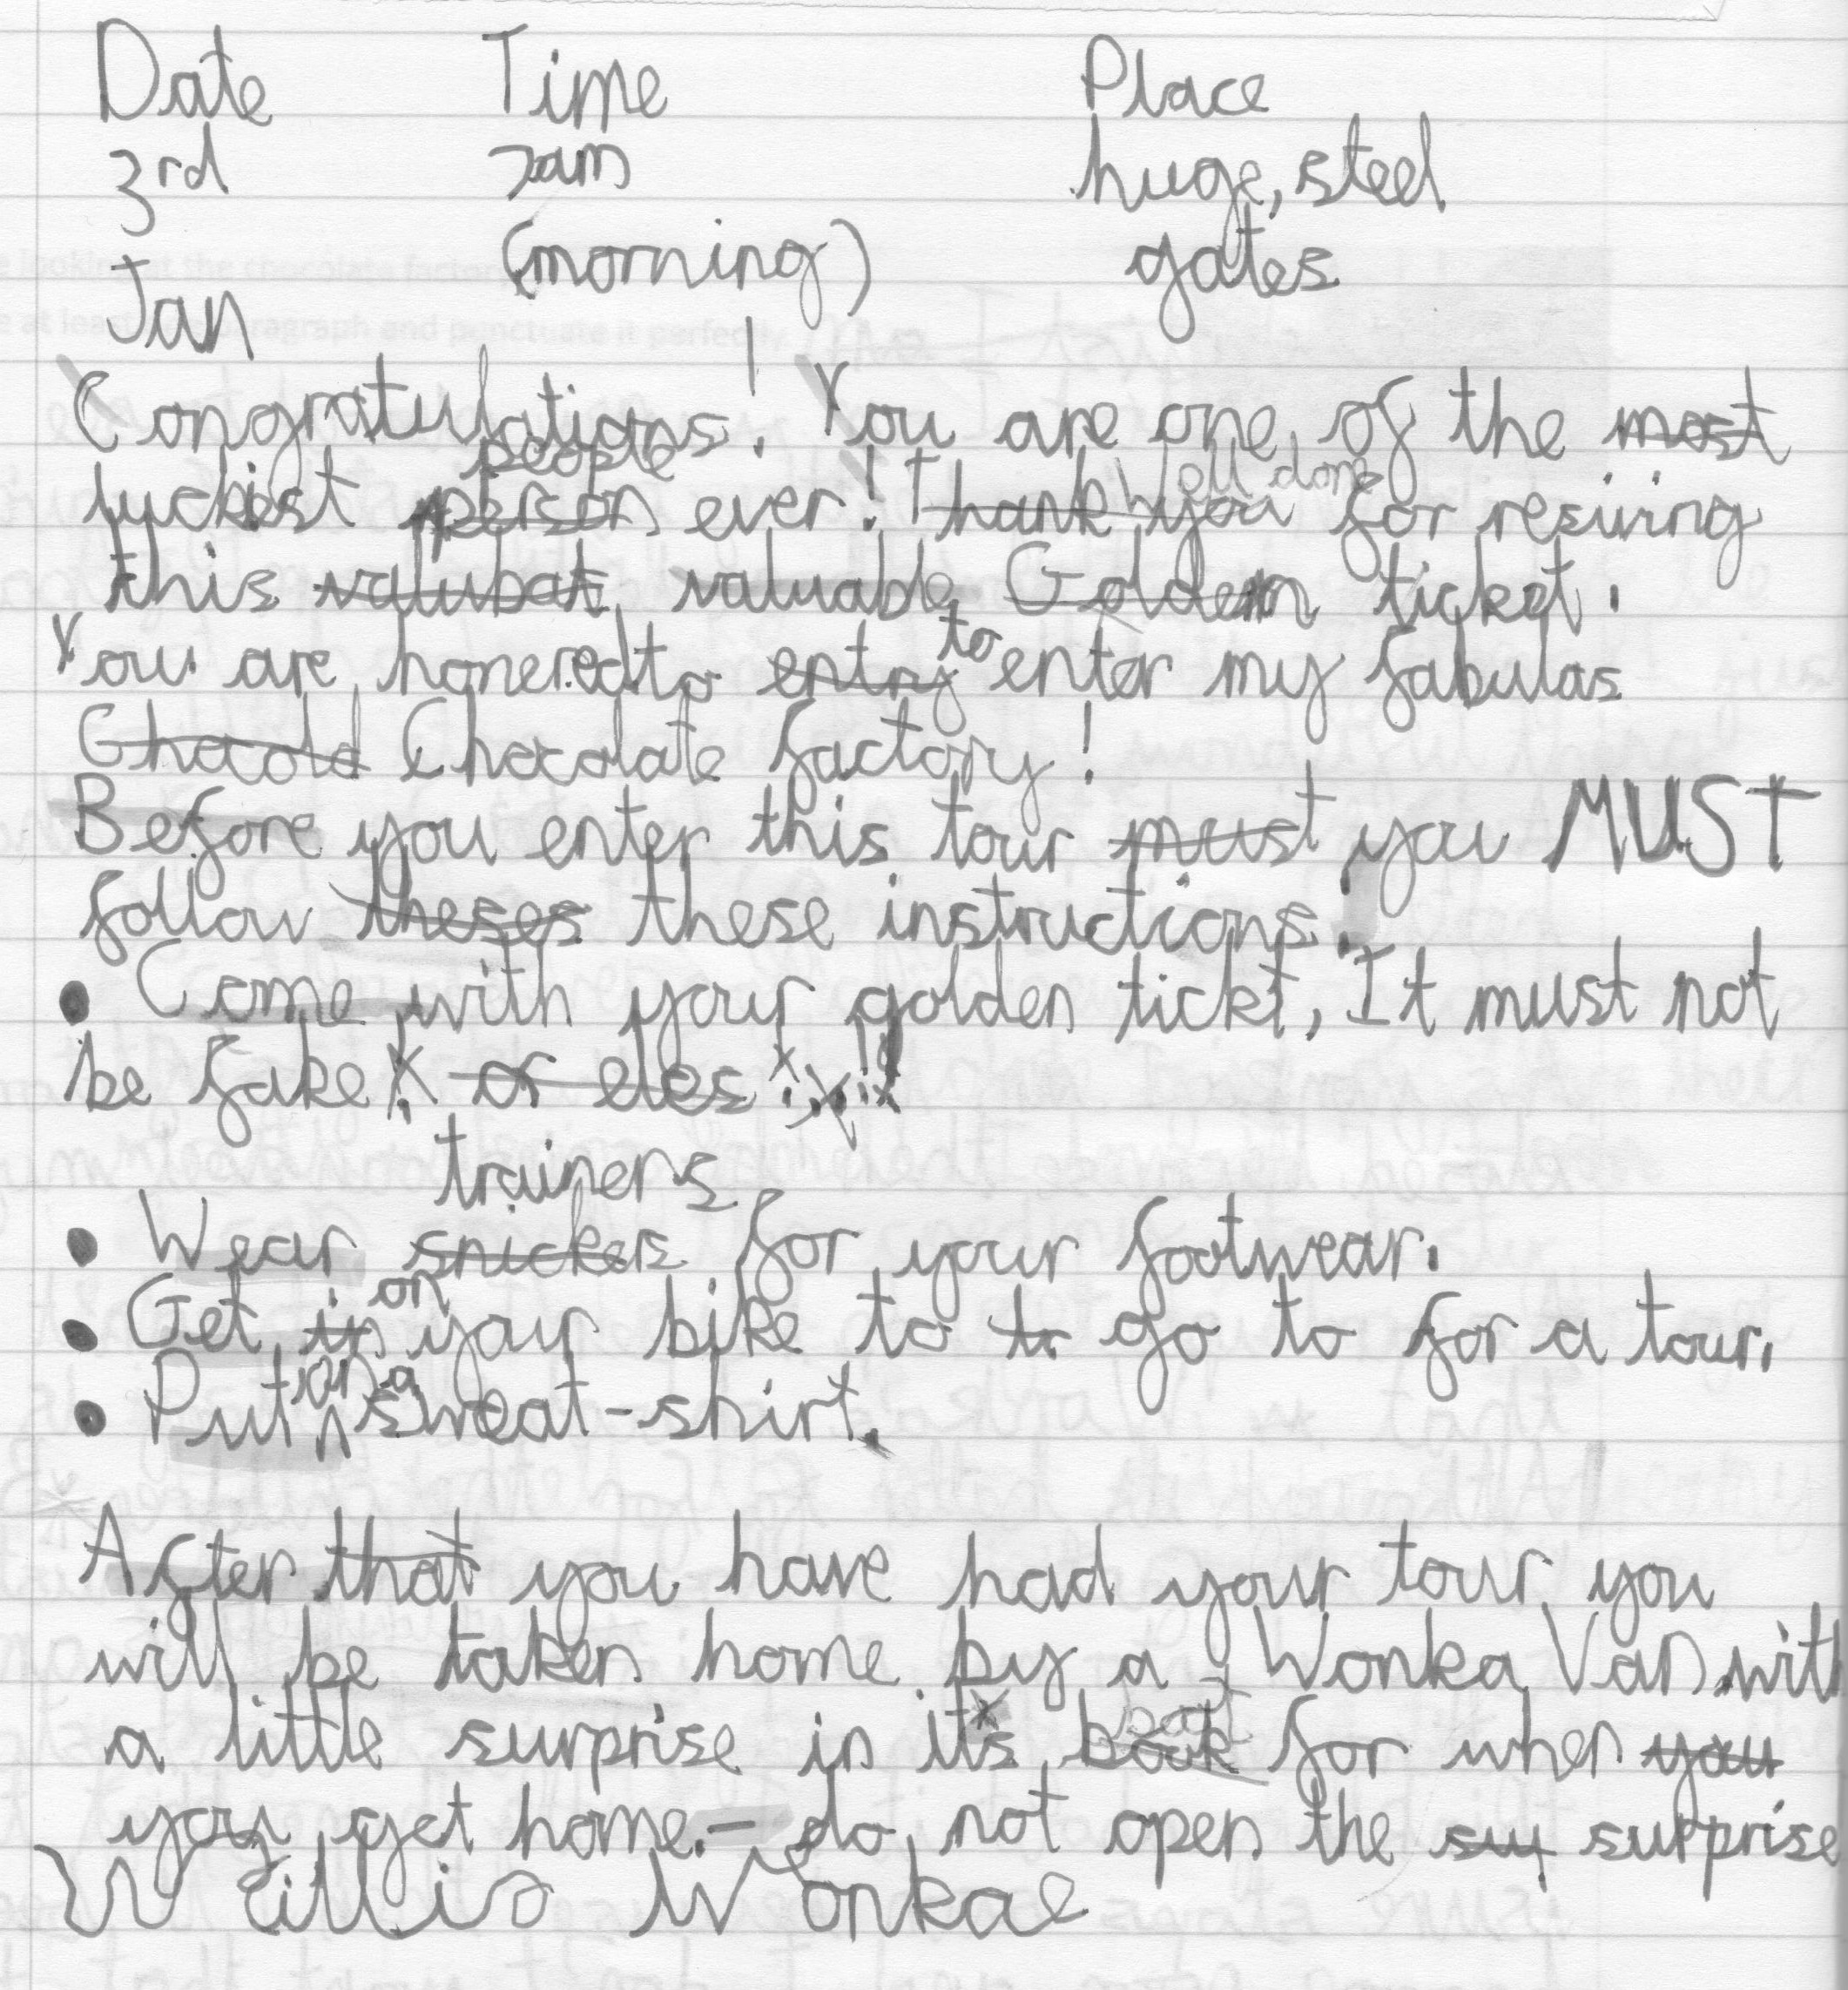 Date Time Place
3rd 7am huge, steel
(morning) gates
Jan
Congratulations! You are one of the most
people
luckiest person ever! Thank you Well done for resiving
this valubat valuable Golden ticket.
You are honered to entry to enter my fabulas
Ghocold Chocolate factory!
Before you enter this tour must you MUST
follow theses these instructions.
• Come with your golden tickt, It must not
be fake! or eles
trainers
• Wear snickers for your footwear.
on
• Get in your bike to to go to for a tour.
on a
• Put sweat-shirt.
After that you have had your tour you
will be taken home by a Wonka Van with
a little surprise in it's book boot for when you
you get home.- do not open the sur surprise
Willis Wonkae